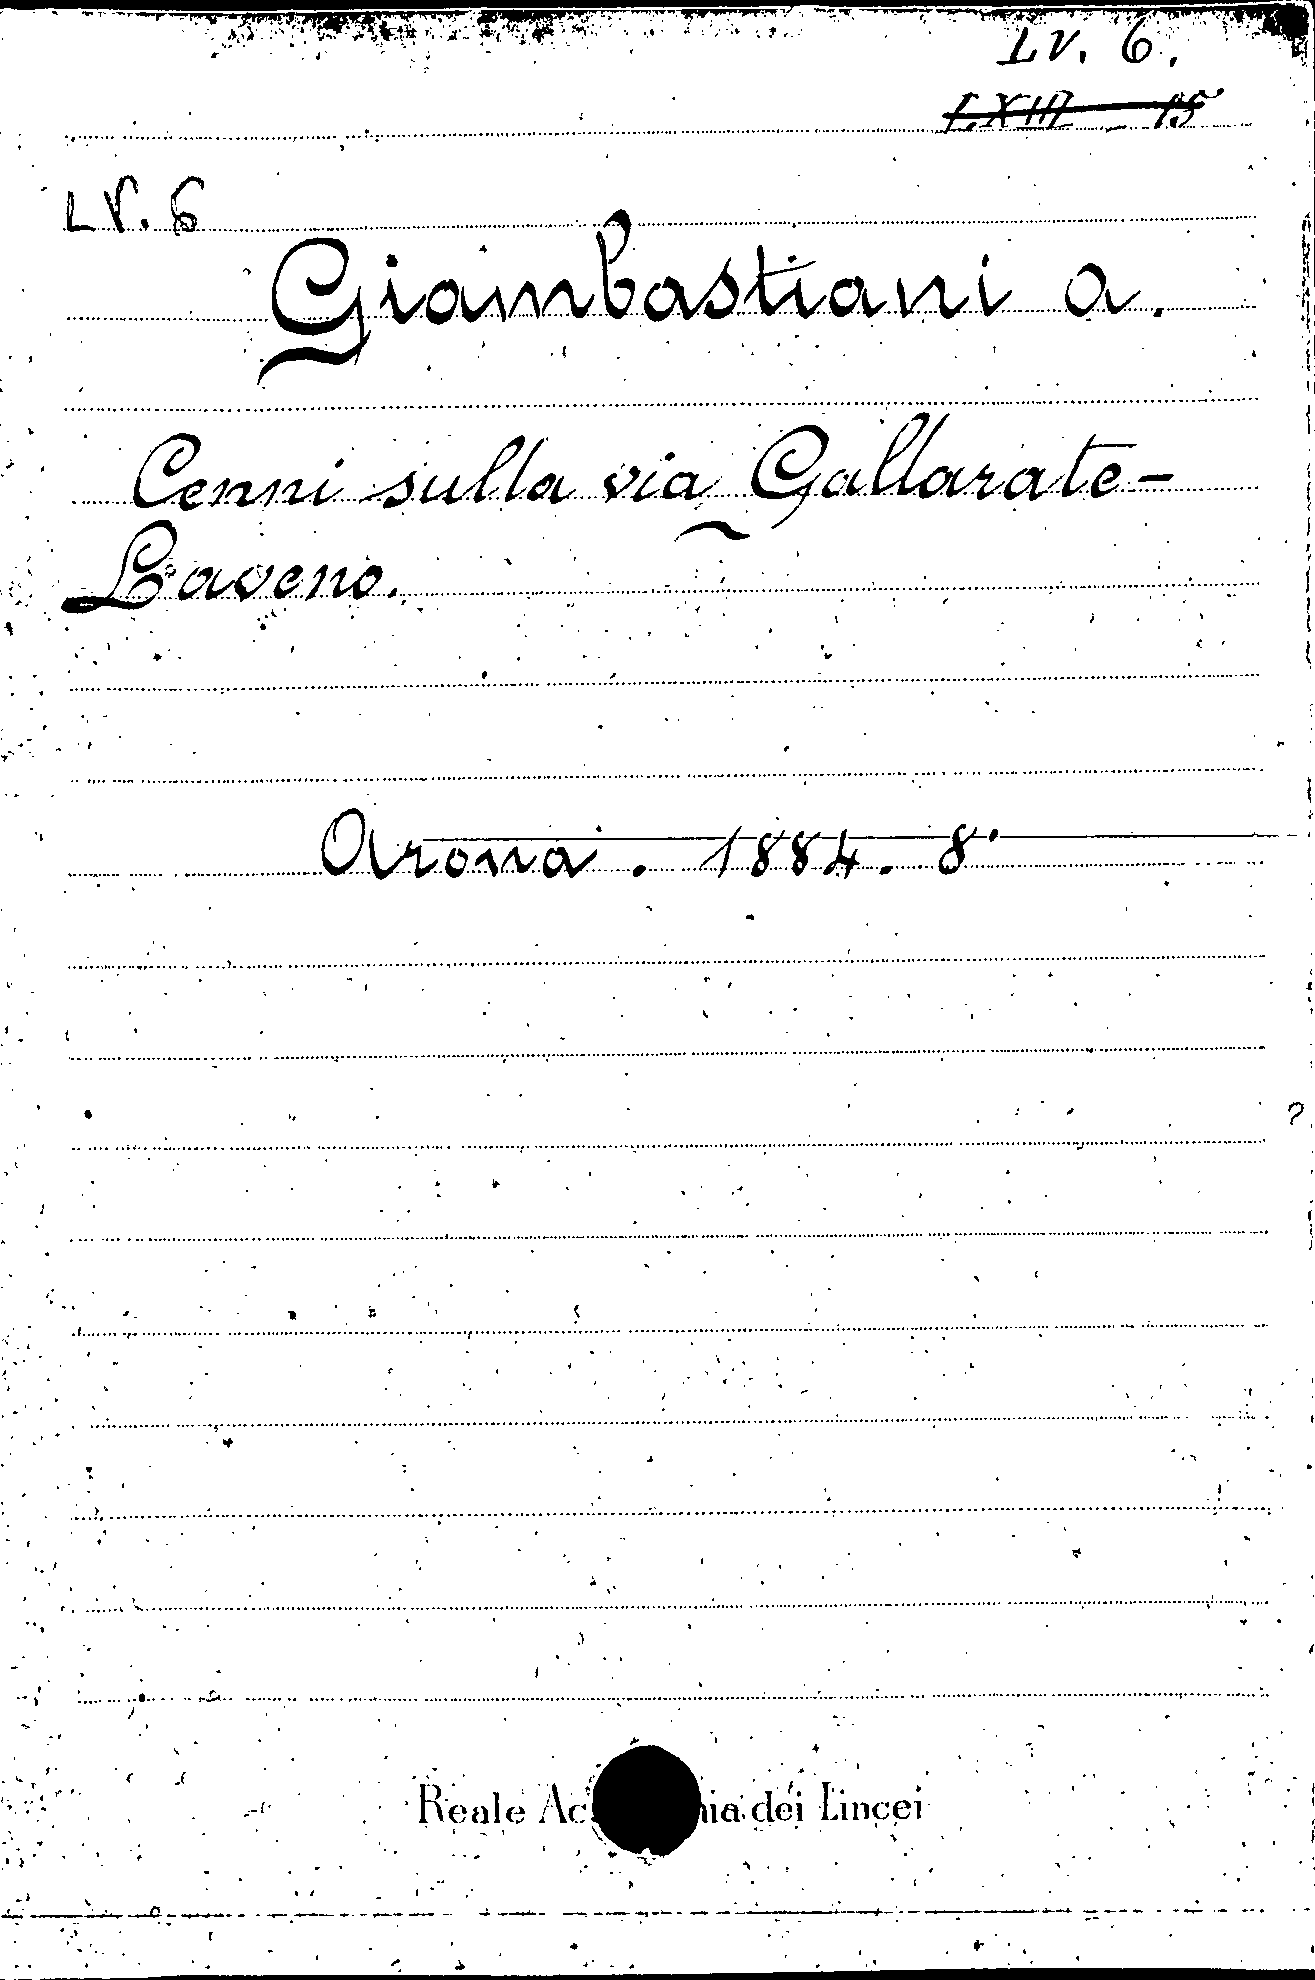 LV. 6.
LXIII — 15
LV. 6
Giambastiani a.
Cenni sulla via Gallarate-
Laveno.
Arona. 1884. 8°
Reale Ac nia dei Lincei